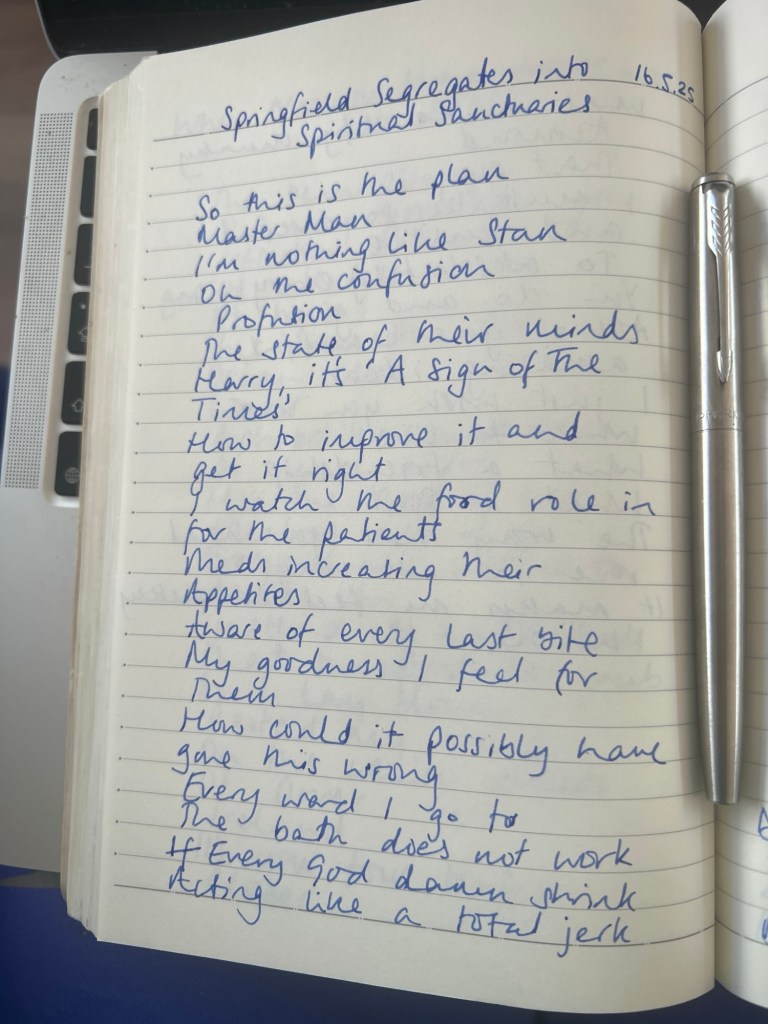 Springfield Segregates into 16.5.25
Spiritual Sanctuaries
So this is the plan
Master Man
I'm nothing like Stan
Oh the confusion
Profusion
The state of their minds
Harry, it's 'A Sign of The
Times'
How to improve it and
get it right
I watch the food role in
for the patients
Meds increasing their
Appetites
Aware of every last bite
My goodness I feel for
Them
How could it possibly have
gone this wrong
Every ward I go to
The bath does not work
If Every God damn shrink
Acting like a total jerk